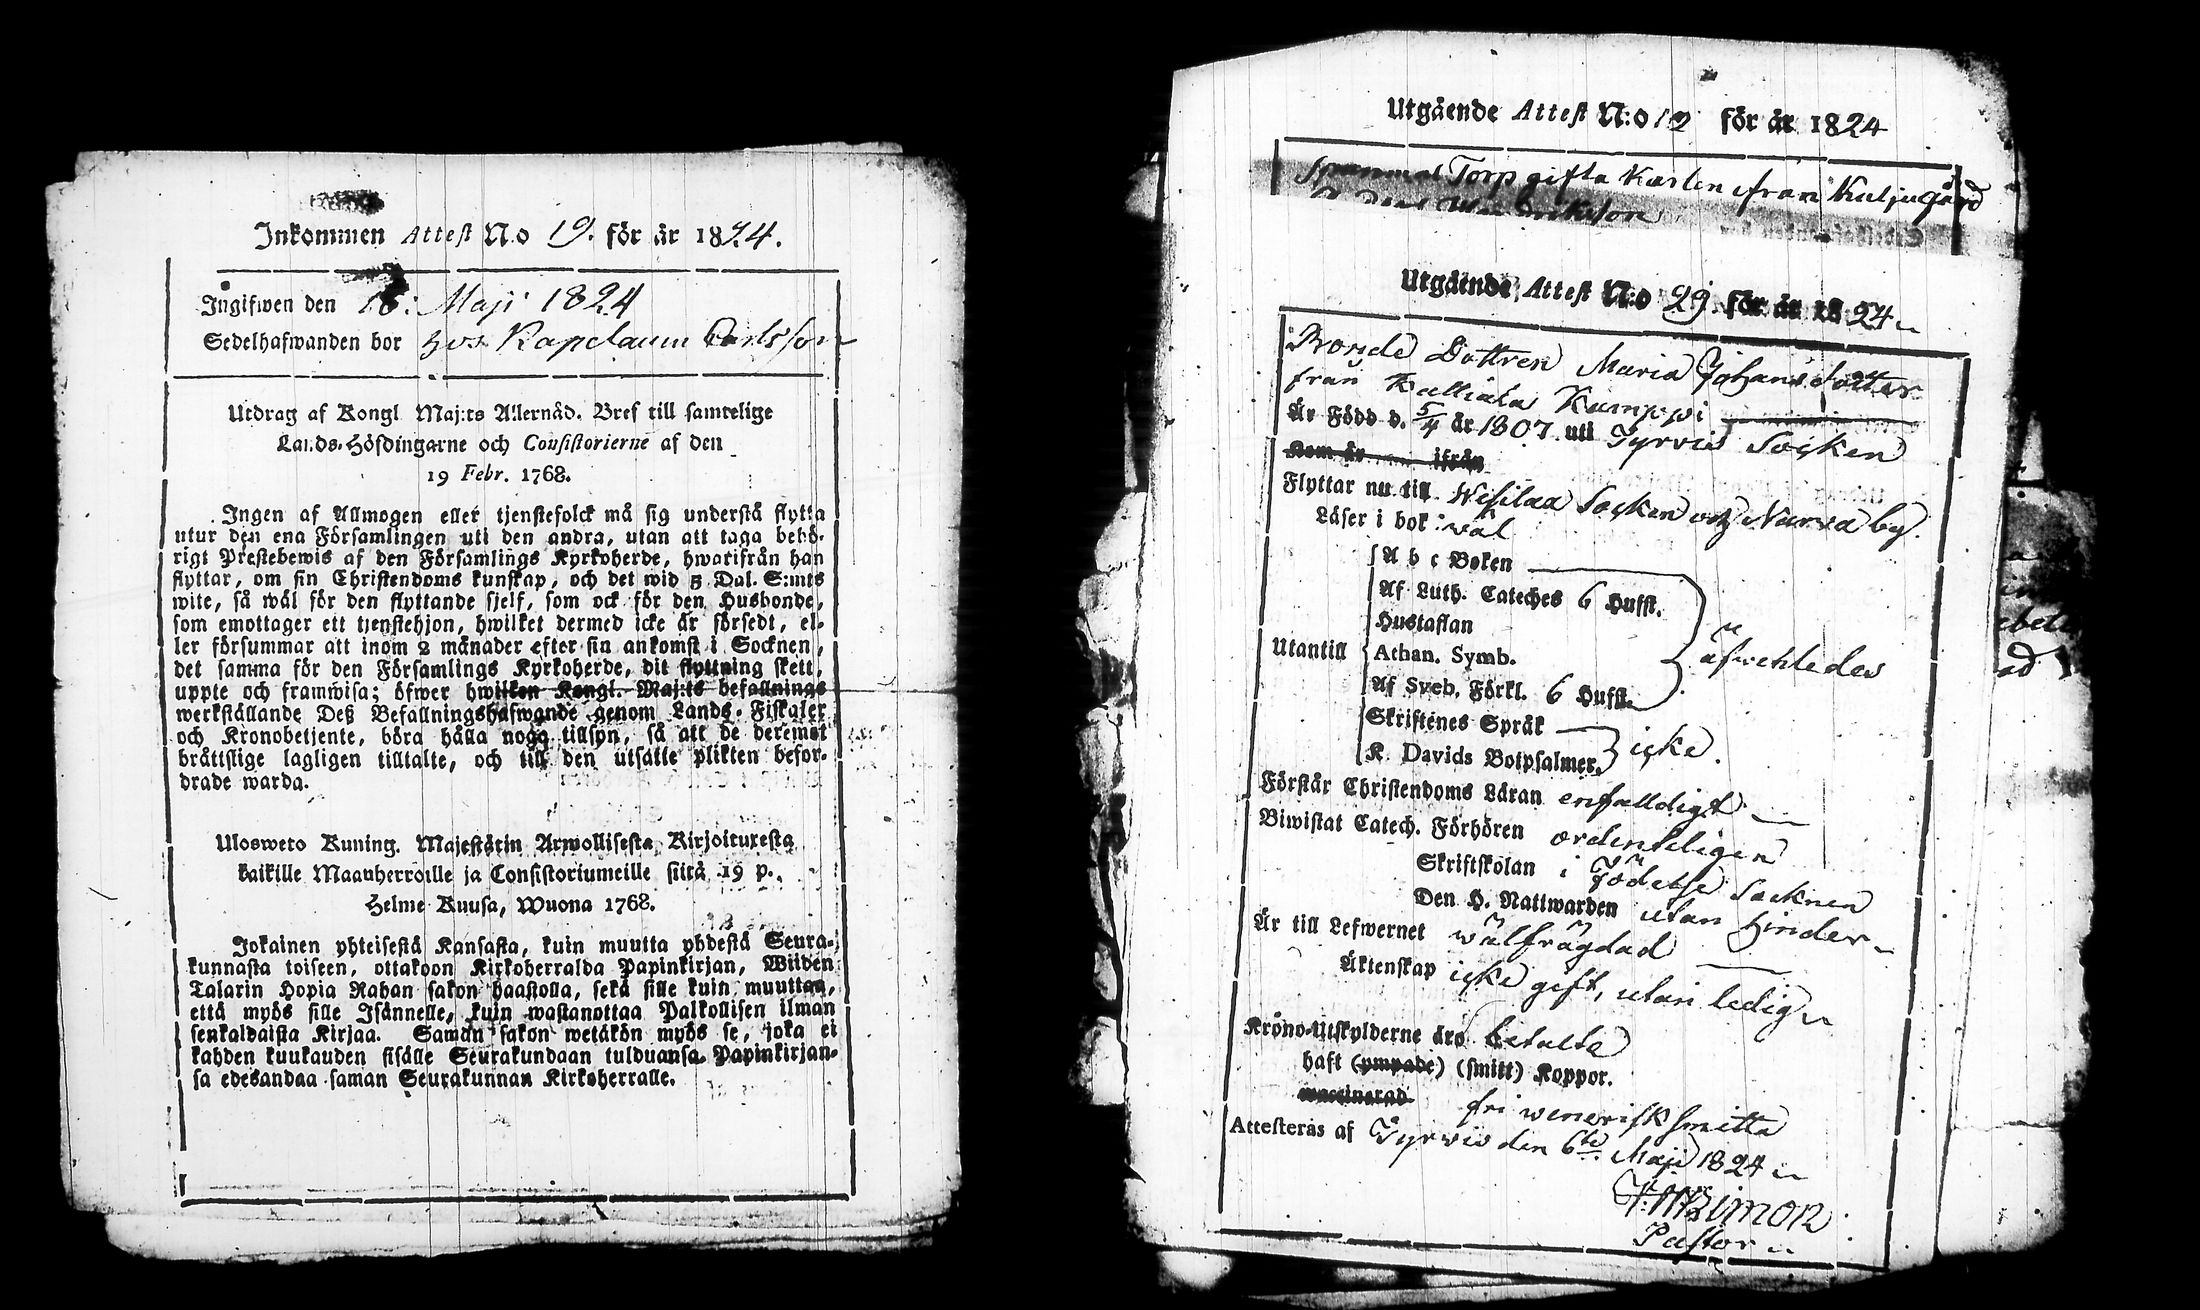 Inkommen Attest N:o 19. för år 1824.
Ingifwen den 18: Maji 1824
Sedelhafwanden bor hos Kapelann Carlsson
Utdrag af Kongl. Maj:ts Allernåd. Bref till samtelige
Lands-Höfdingarne och Consistorierne af den
19 Febr. 1768.
Ingen af Allmogen eller tjenstefolck må sig understå flytta
utur den ena Församlingen uti den andra, utan att taga behö-
rigt Prestebewis af den Församlings Kyrkoherde, hwarifrån han
flyttar, om sin Christendoms kunskap, och det wid 5 Dal. S:mts
wite, så wäl för den flyttande sjelf, som ock för den Husbonde,
som emottager ett tjenstehjon, hwilket dermed icke är försedt, el-
ler försummar att inom 2 månader efter sin ankomst i Socknen,
det samma för den Församlings Kyrkoherde, dit flyttning skett,
uppte och framwisa; öfwer hwilken Kongl. Maj:ts befallnings
werkställande Deß Befallningshafwande genom Lands-Fiskaler
och Kronobetjente, böra hålla noga tillsyn, så att de deremot
bråttslige lagligen tilltalte, och till den utsatte plikten befor-
drade warda.
Ulosweto Kuning. Majestätin Armollisesta Kirjoituxesta
kaikille Maanherroille ja Consistoriumeille siitä 19 p.
Helme Kuusa, Wuona 1768.
Jokainen yhteisestä Kansasta, kuin muutta yhdestä Seura-
kunnasta toiseen, ottakoon Kirkoherralda Papinkirjan, Wiiden
Talarin Hopia Rahan sakon haastolla, sekä sille kuin muuttaa,
että myös sille Isännelle, kuin wastanottaa Palkollisen ilman
senkaldaista Kirjaa. Saman sakon wetäkön myös se, joka ei
kahden kuukauden sisälle Seurakundaan tulduansa Papinkirjan-
sa edesandaa saman Seurakunnan Kirkoherralle.
Utgående Attest N:o 12 för år 1824
Torp gifta Karlen från Kuljugård
Utgående Attest N:o 29. för år 1824
Bonde Dottren Maria Johansdotter
från Kalliala Kamppi
Är Född d. 5/4 år 1807 uti Tyrvis Socken
Kom är ifrån
Flyttar nu till Wesilax Socken och Narva by.
Läser i bok wäl
Utantill
A b c Boken
Af Luth. Cateches 6 Hufst.
Hustaflan
Athan. Symb.
Af Sveb. Förkl. 6 Hufst.
äfwenledes
Skriftenes Språk
K. Davids Botpsalmer.
icke.
Förstår Christendoms Läran enfalldigt
Biwistat Catech. Förhören ordenteligen
Skriftskolan i Födelse Socknen
Den H. Nattwarden utan hinder
Är till Lefwernet wälfrägdad
Äktenskap icke gift, utan ledig
Krono-Utskylderne äro betalte
haft (ympade) (smitt) Koppor.
vaccinerad
fri wenerisk smitta
Attesteras af Tyrvis den 6te Maji 1824
Pastor